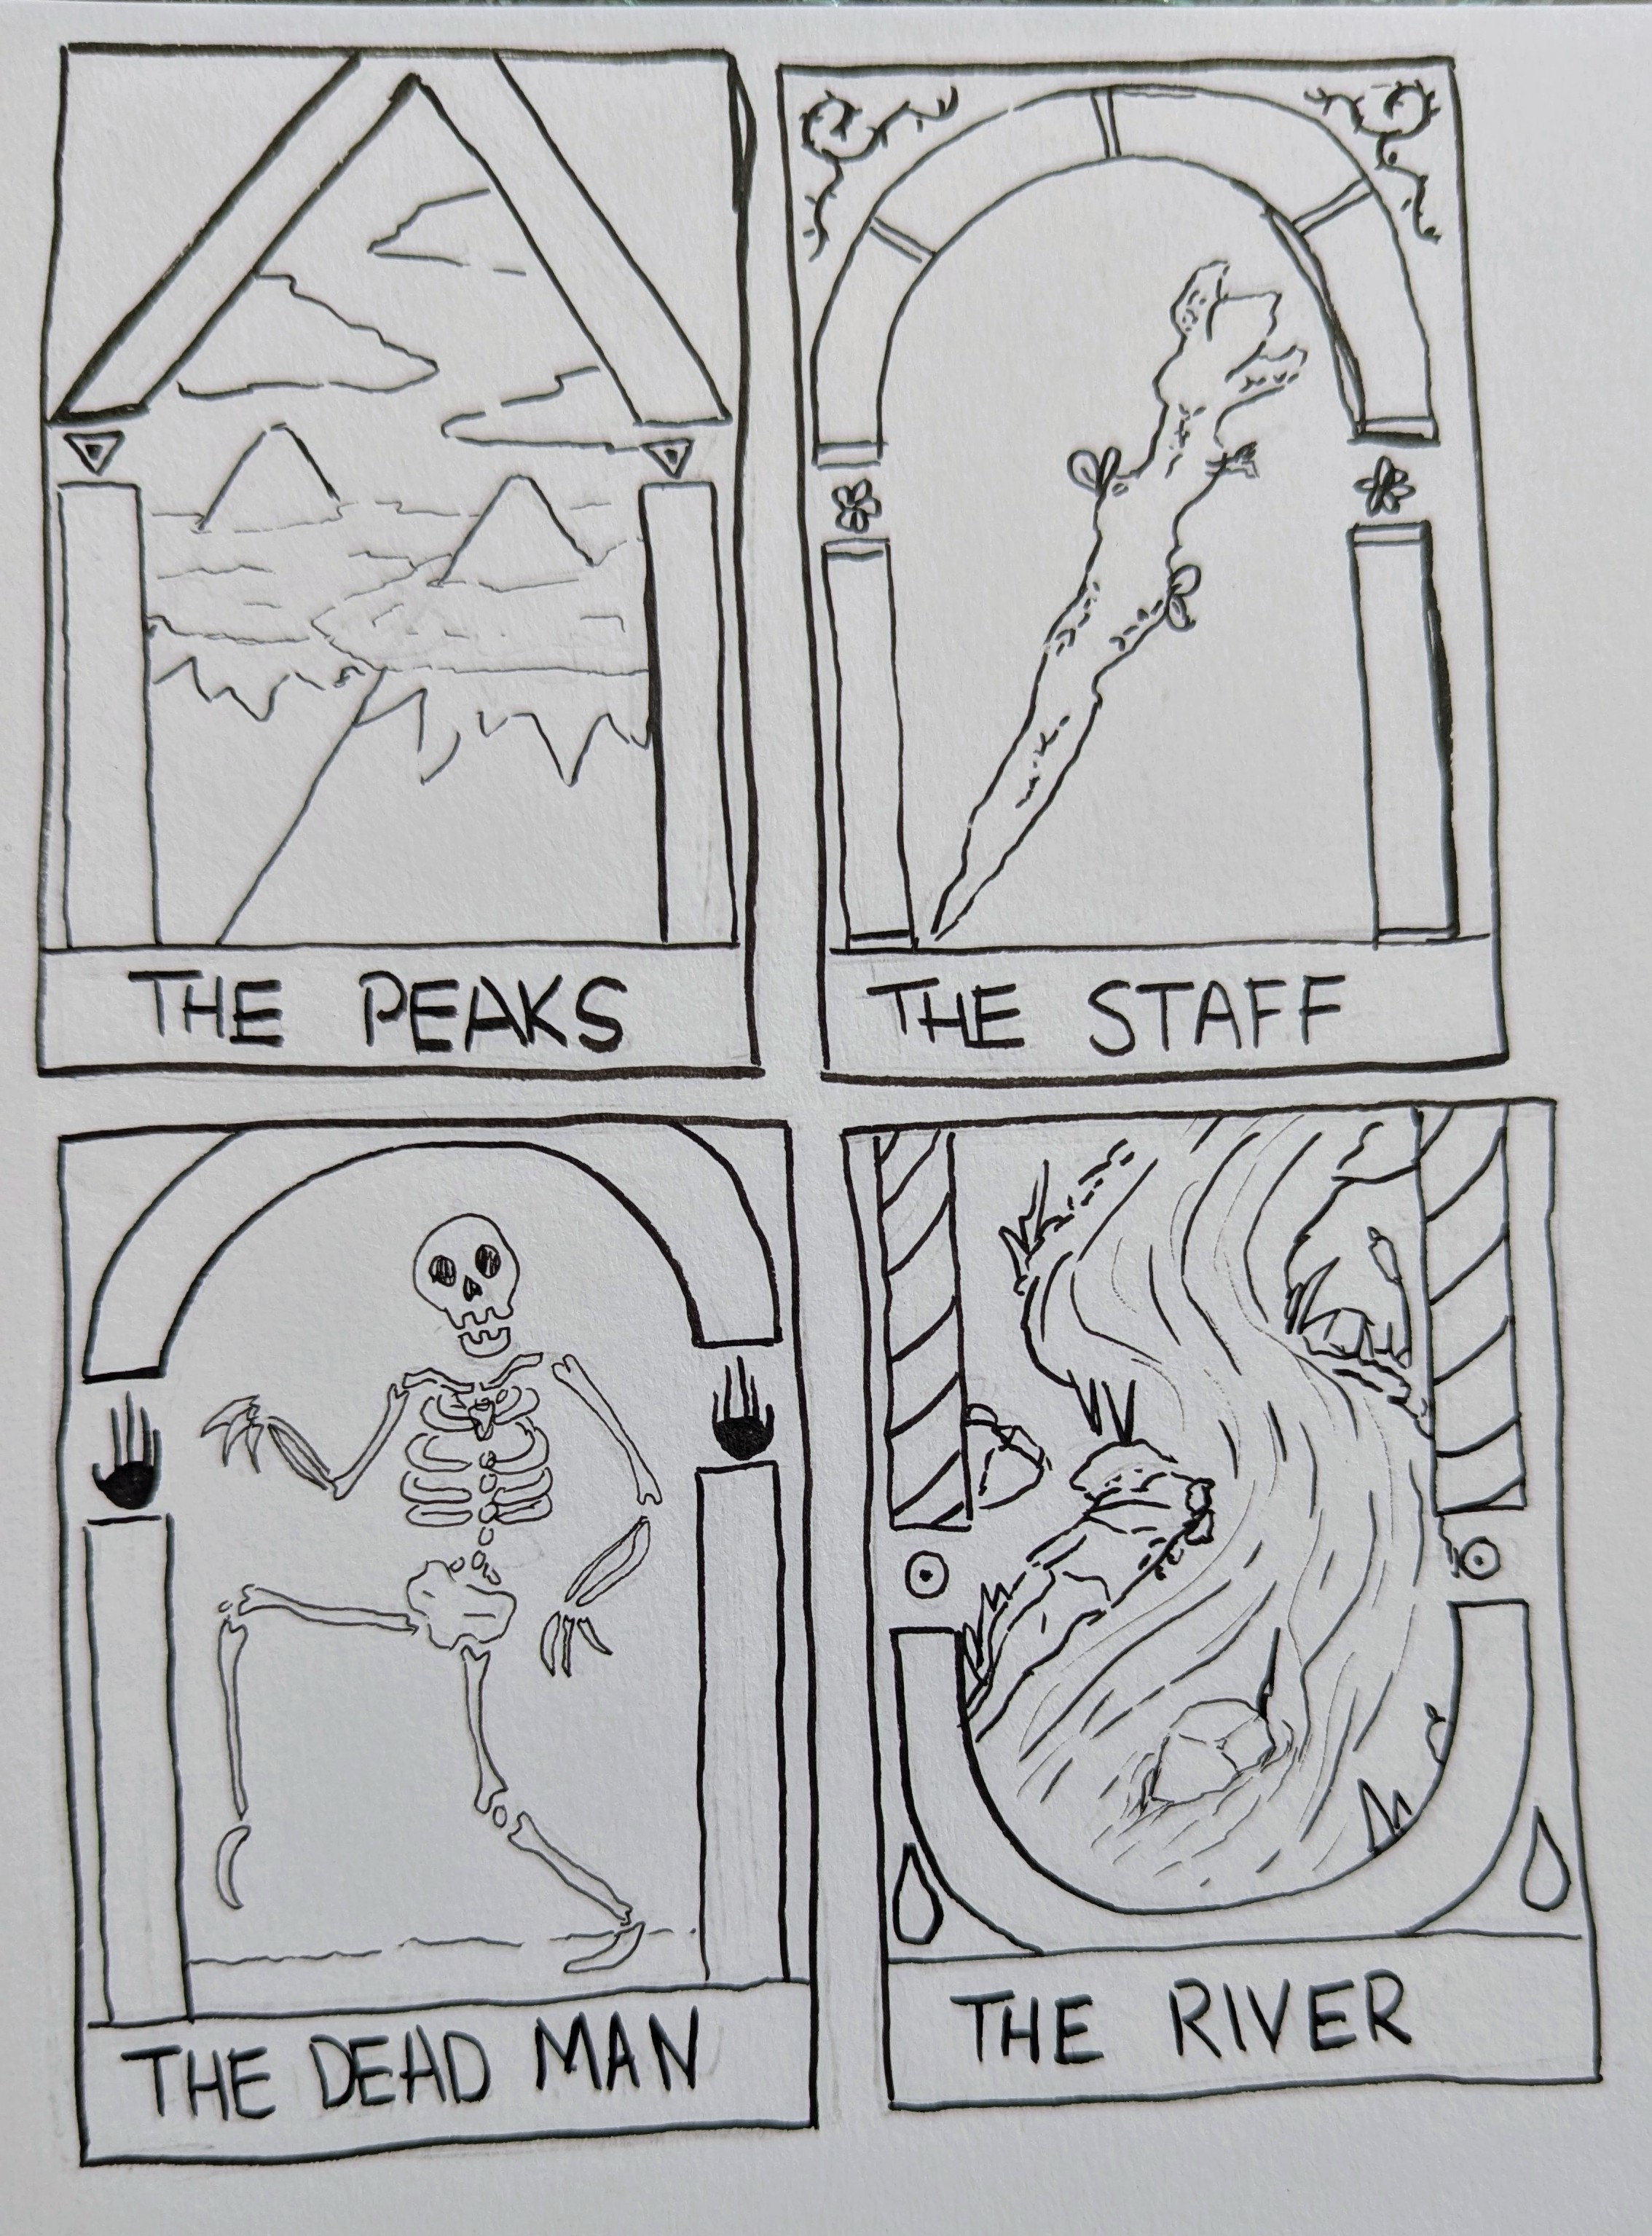 THE PEAKS
THE STAFF
THE DEAD MAN
THE RIVER